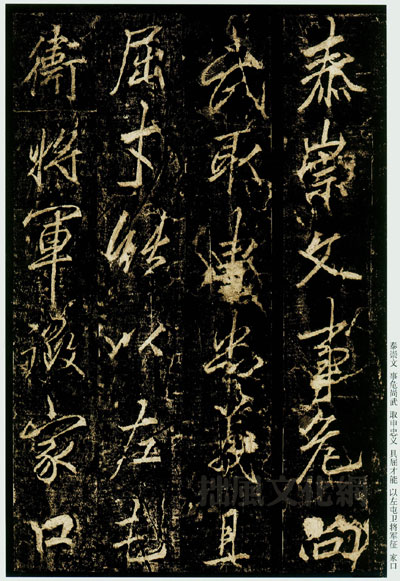 泰崇文事危尚
武取申忠義且
屈才能以左屯
衛將軍徵家口
泰崇文 事危尚武 取申忠义 且屈才能 以左屯卫将军征 家口
拙風文化網